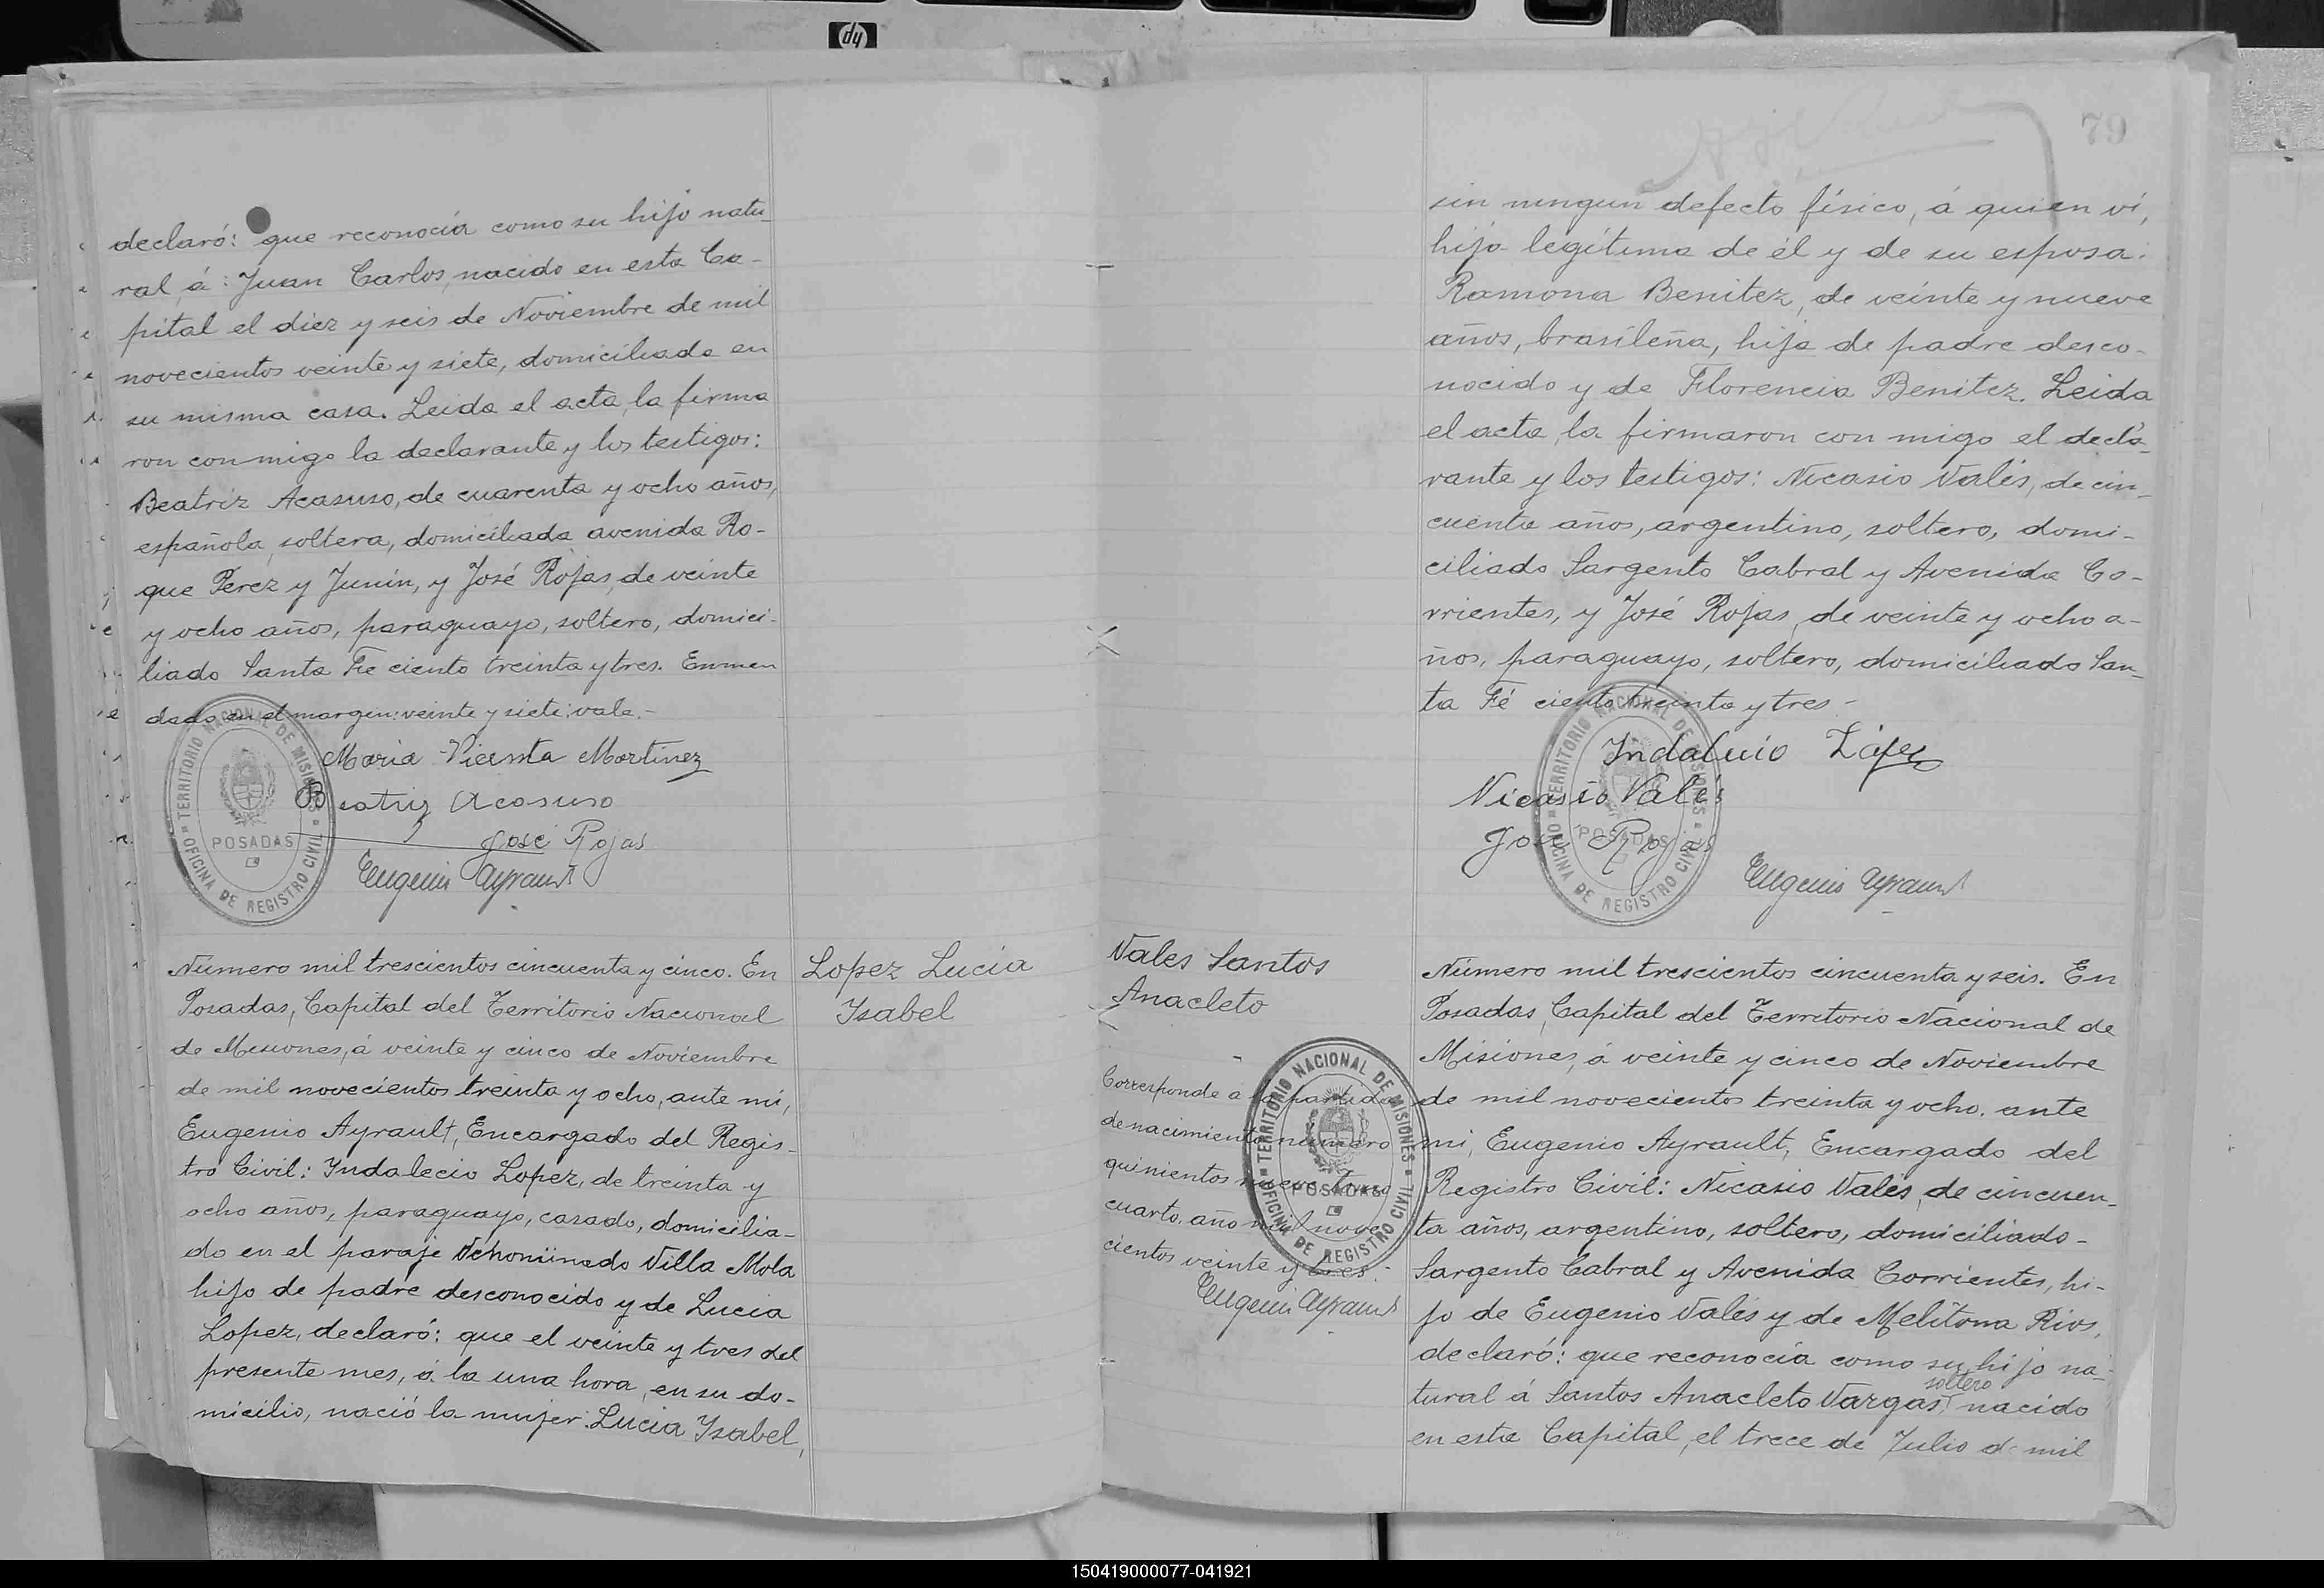 hp
declaró: que reconocía como su hijo natu_
ral á: Juan Carlos, nacido en esta Ca-
pital el diez y seis de Noviembre de mil
novecientos veinte y siete, domiciliado en
su misma casa. Leida el acta, la firma
ron con migo la declarante y los testigos:
Beatriz Acasuso, de cuarenta y ocho años,
española, soltera, domiciliada avenida Ro-
que Perez y Junin, y José Rojas, de veinte
y ocho años, paraguayo, soltero, domici-
liado Santa Fe ciento treinta y tres. Enmen
dado en el margen: veinte y siete: vale.-
Maria Vicenta Martinez
Beatriz Acasuso
José Rojas
Eugenio Ayrault
TERRITORIO NACIONAL DE MISIONES
POSADAS
OFICINA DE REGISTRO CIVIL
Número mil trescientos cincuenta y cinco. En
Posadas, Capital del Territorio Nacional
de Misiones, á veinte y cinco de Noviembre
de mil novecientos treinta y ocho, ante mi,
Eugenio Ayrault, Encargado del Regis-
tro Civil: Indalecio Lopez, de treinta y
ocho años, paraguayo, casado, domicilia-
do en el paraje denominado Villa Mola
hijo de padre desconocido y de Lucia
Lopez, declaró: que el veinte y tres del
presente mes, á la una hora, en su do-
micilio, nació la mujer: Lucia Ysabel,
Lopez Lucia
Ysabel
79
sin ningun defecto físico, á quien ví,
hija legítima de él y de su esposa:
Ramona Benitez, de veinte y nueve
años, brasileña, hija de padre desco-
nocido y de Florencia Benitez. Leida
el acta, la firmaron con migo el decla_
rante y los testigos: Nicasio Valés, de cin_
cuenta años, argentino, soltero, domi-
ciliado Sargento Cabral y Avenida Co-
rrientes, y José Rojas, de veinte y ocho a-
ños, paraguayo, soltero, domiciliado San_
ta Fé ciento treinta y tres.-
Indalecio López
Nicasio Valés
José Rojas
Eugenio Ayrault
TERRITORIO NACIONAL DE MISIONES
POSADAS
OFICINA DE REGISTRO CIVIL
Vales Santos
Anacleto
Corresponde a la partida
de nacimiento número
quinientos nueve, tomo
cuarto, año mil nove
cientos veinte y tres.-
Eugenio Ayrault
TERRITORIO NACIONAL DE MISIONES
POSADAS
OFICINA DE REGISTRO CIVIL
Número mil trescientos cincuenta y seis. En
Posadas, Capital del Territorio Nacional de
Misiones, á veinte y cinco de Noviembre
de mil novecientos treinta y ocho, ante
mi, Eugenio Ayrault, Encargado del
Registro Civil: Nicasio Valés, de cincuen_
ta años, argentino, soltero, domiciliado-
Sargento Cabral y Avenida Corrientes, hi-
jo de Eugenio Valés y de Melitona Rios,
declaró: que reconocía como su hijo na-
soltero
tural á Santos Anacleto Vargas, nacido
en esta Capital, el trece de Julio de mil
150419000077-041921